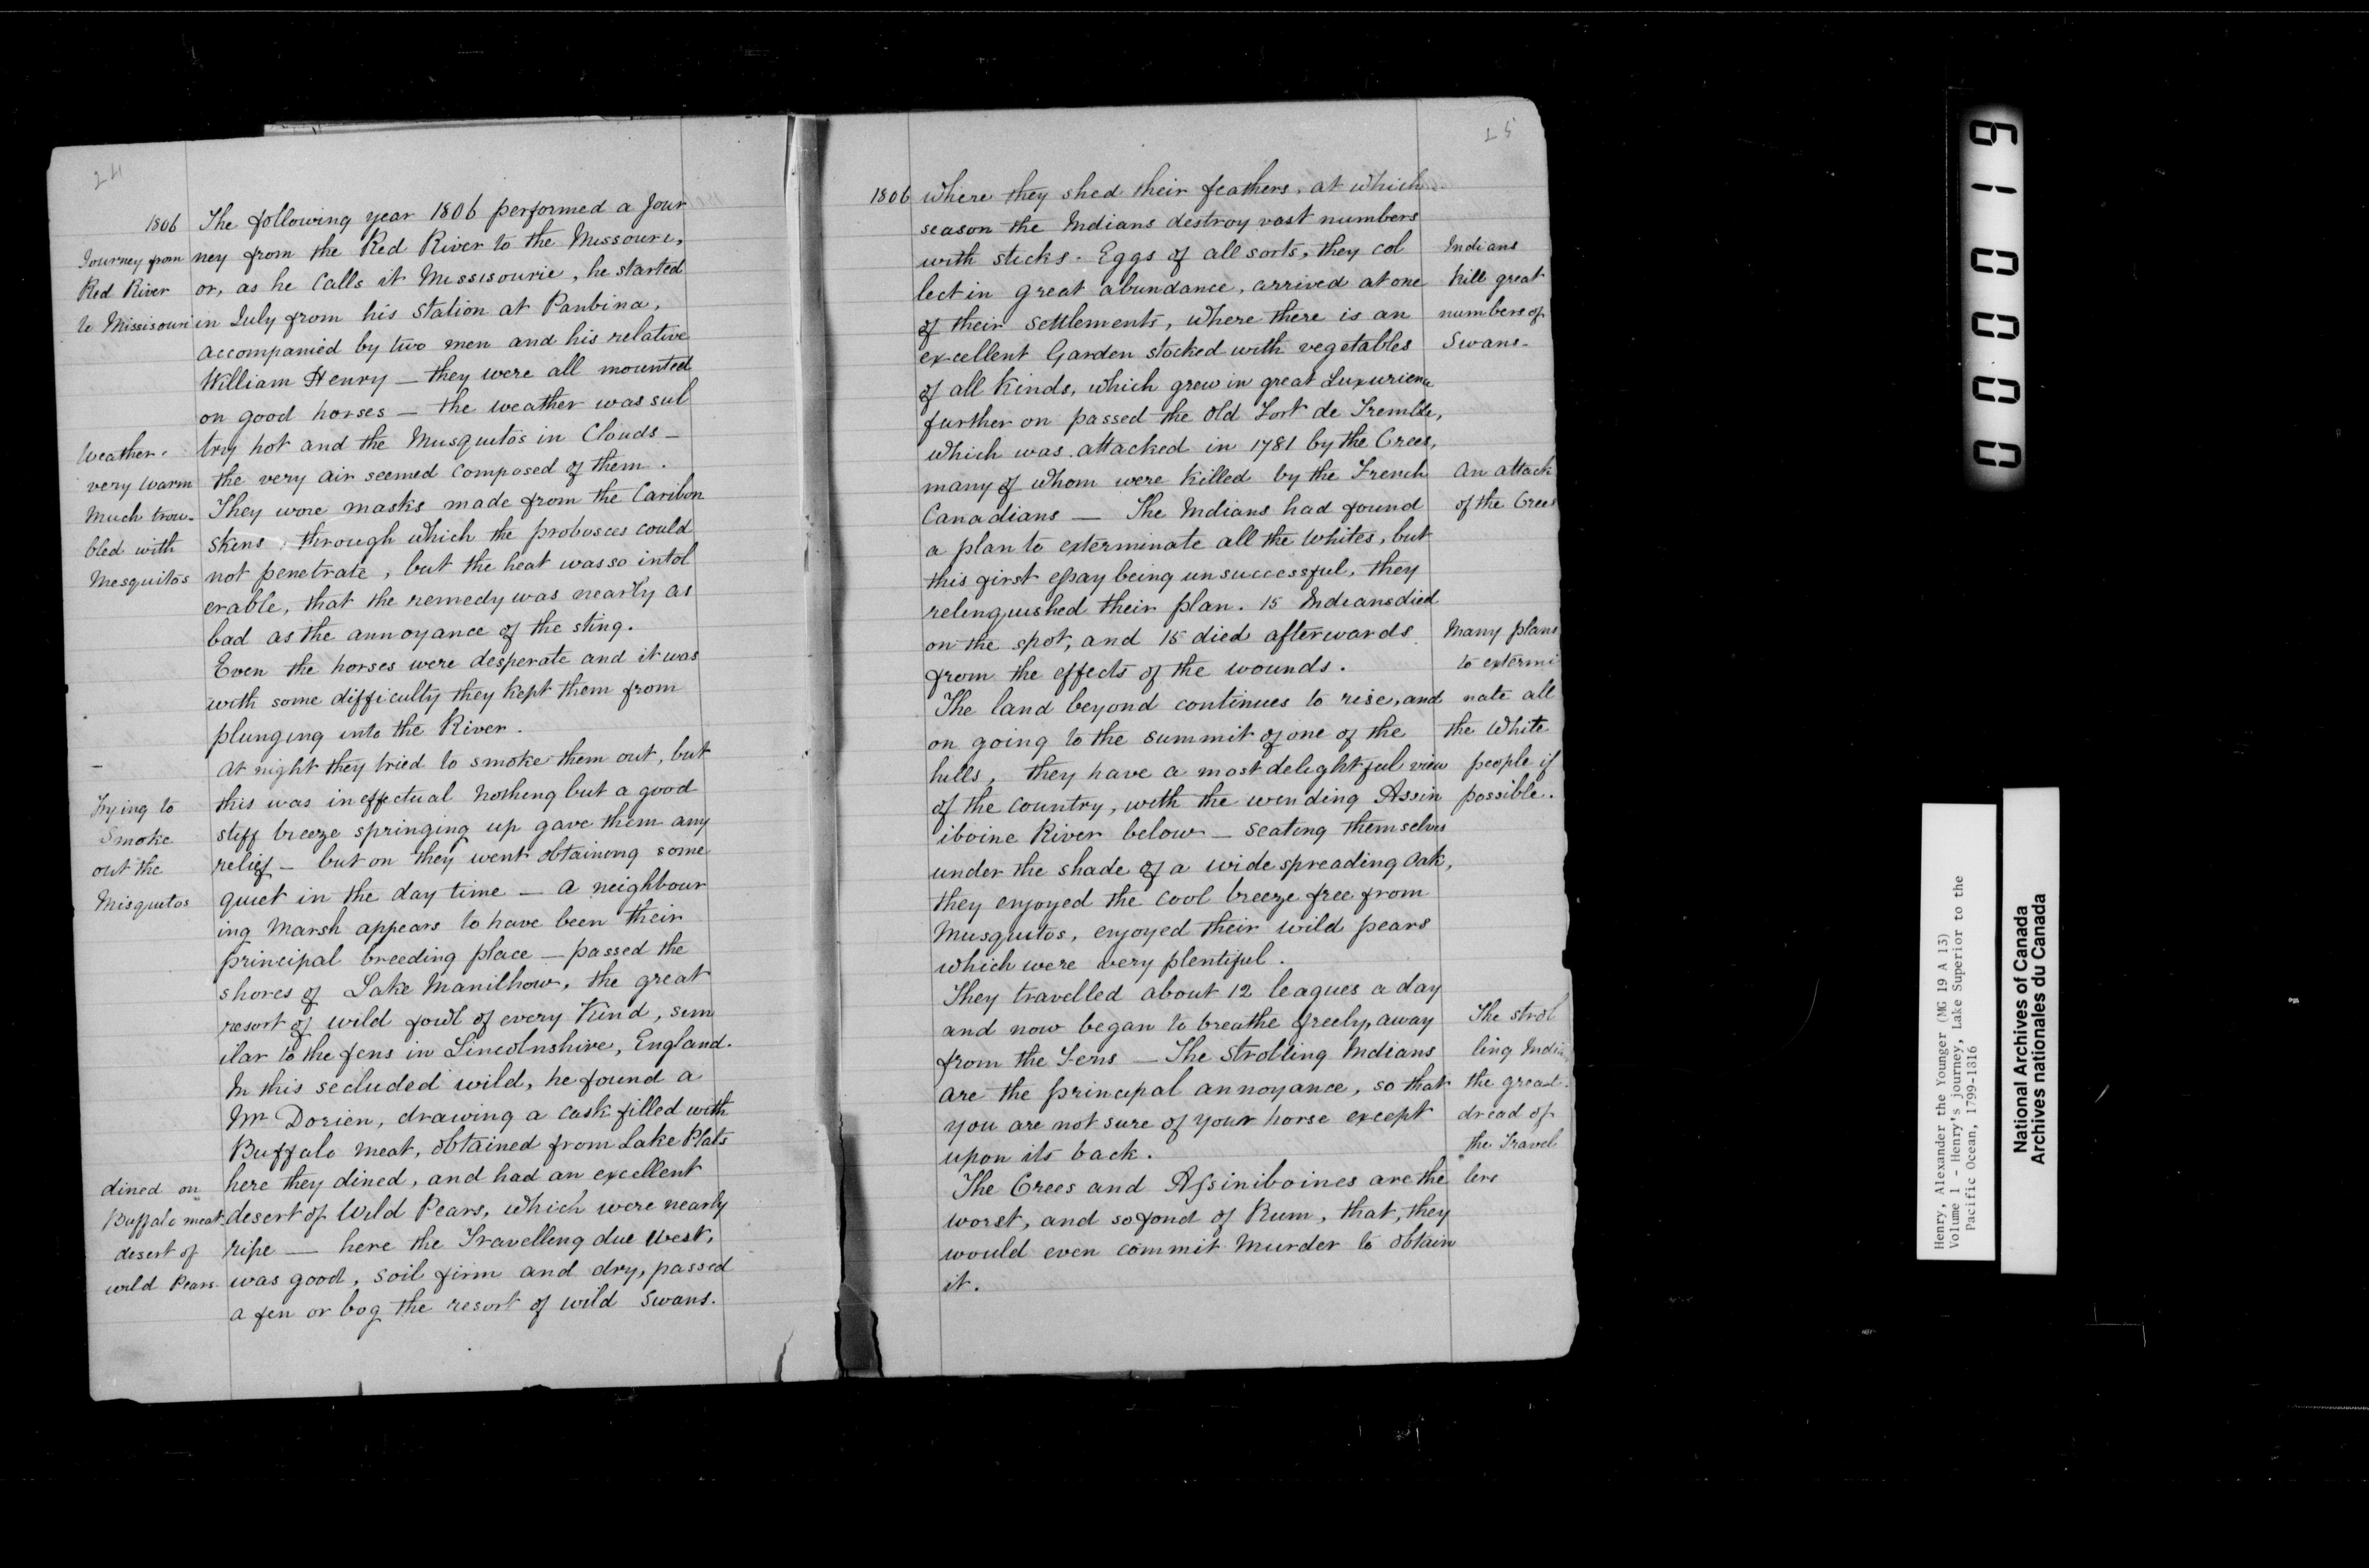 24
1806
Journey from
Red River
to Missisouri
Weather.
very warm
Much trou-
bled with
Mesquitos
Trying to
Smoke
out the
Misquitos
dined on
Buffalo meat
desert of
wild Pears
The following year 1806 performed a Jour
ney from the Red River to the Missouri,
or, as he Calls it Missisourie, he started
in July from his Station at Panbina,
accompanied by two men and his relative
William Henry — they were all mounted
on good horses — the weather was sul
try hot and the Musquitos in Clouds —
the very air seemed composed of them.
They wore masks made from the Caribon
skins, through which the probosces could
not penetrate, but the heat was so intol
erable, that the remedy was nearly as
bad as the annoyance of the sting.
Even the horses were desperate and it was
with some difficulty they kept them from
plunging into the River.
At night they tried to smoke them out, but
this was ineffectual Nothing but a good
stiff breeze springing up gave them any
relief — but on they went obtaining some
quiet in the day time — a neighbour
ing Marsh appears to have been their
principal breeding place — passed the
shores of Lake Manilhow, the great
resort of wild fowl of every Kind, sim
ilar to the fens in Lincolnshire, England.
In this secluded wild, he found a
Mr Dorien, drawing a cask filled with
Buffalo Meat, obtained from Lake Plats
here they dined, and had an excellent
desert of Wild Pears, which were nearly
ripe — here the Travelling due West,
was good, soil firm and dry, passed
a fen or bog the resort of wild Swans.
25
1806
where they shed their feathers, at which
season the Indians destroy vast numbers
with sticks. Eggs of all sorts, they col
lect in great abundance, arrived at one
of their settlements, where there is an
excellent Garden stocked with vegetables
of all Kinds, which grew in great Luxurienc
further on passed the Old Fort de Tremble,
which was attacked in 1781 by the Crees,
many of whom were killed by the French
Canadians — The Indians had found
a plan to exterminate all the Whites, but
this first essay being unsuccessful, they
relinquished their plan. 15 Indians died
on the spot, and 15 died afterwards
from the effects of the wounds.
The land beyond continues to rise, and
on going to the summit of one of the
hills, they have a most delightful view
of the country, with the winding Assin
iboine River below — seating themselves
under the shade of a wide spreading Oak,
they enjoyed the cool breeze free from
Musquitos, enjoyed their wild pears
which were very plentiful.
They travelled about 12 leagues a day
and now began to breathe freely, away
from the Fens — The strolling Indians
are the principal annoyance, so that
you are not sure of your horse except
upon its back.
The Crees and Assiniboines are the
worst, and so fond of Rum, that, they
would even commit Murder to obtain
it.
Indians
Kill great
numbers of
Swans-
An attack
of the Crees
Many plans
to extermi
nate all
the White
people if
possible.
The strol
ling Indi
the great
dread of
the Travel
lers
000019
Henry, Alexander the Younger (MG 19 A 13)
Volume 1 - Henry's journey, Lake Superior to the
Pacific Ocean, 1799-1816
National Archives of Canada
Archives nationales du Canada